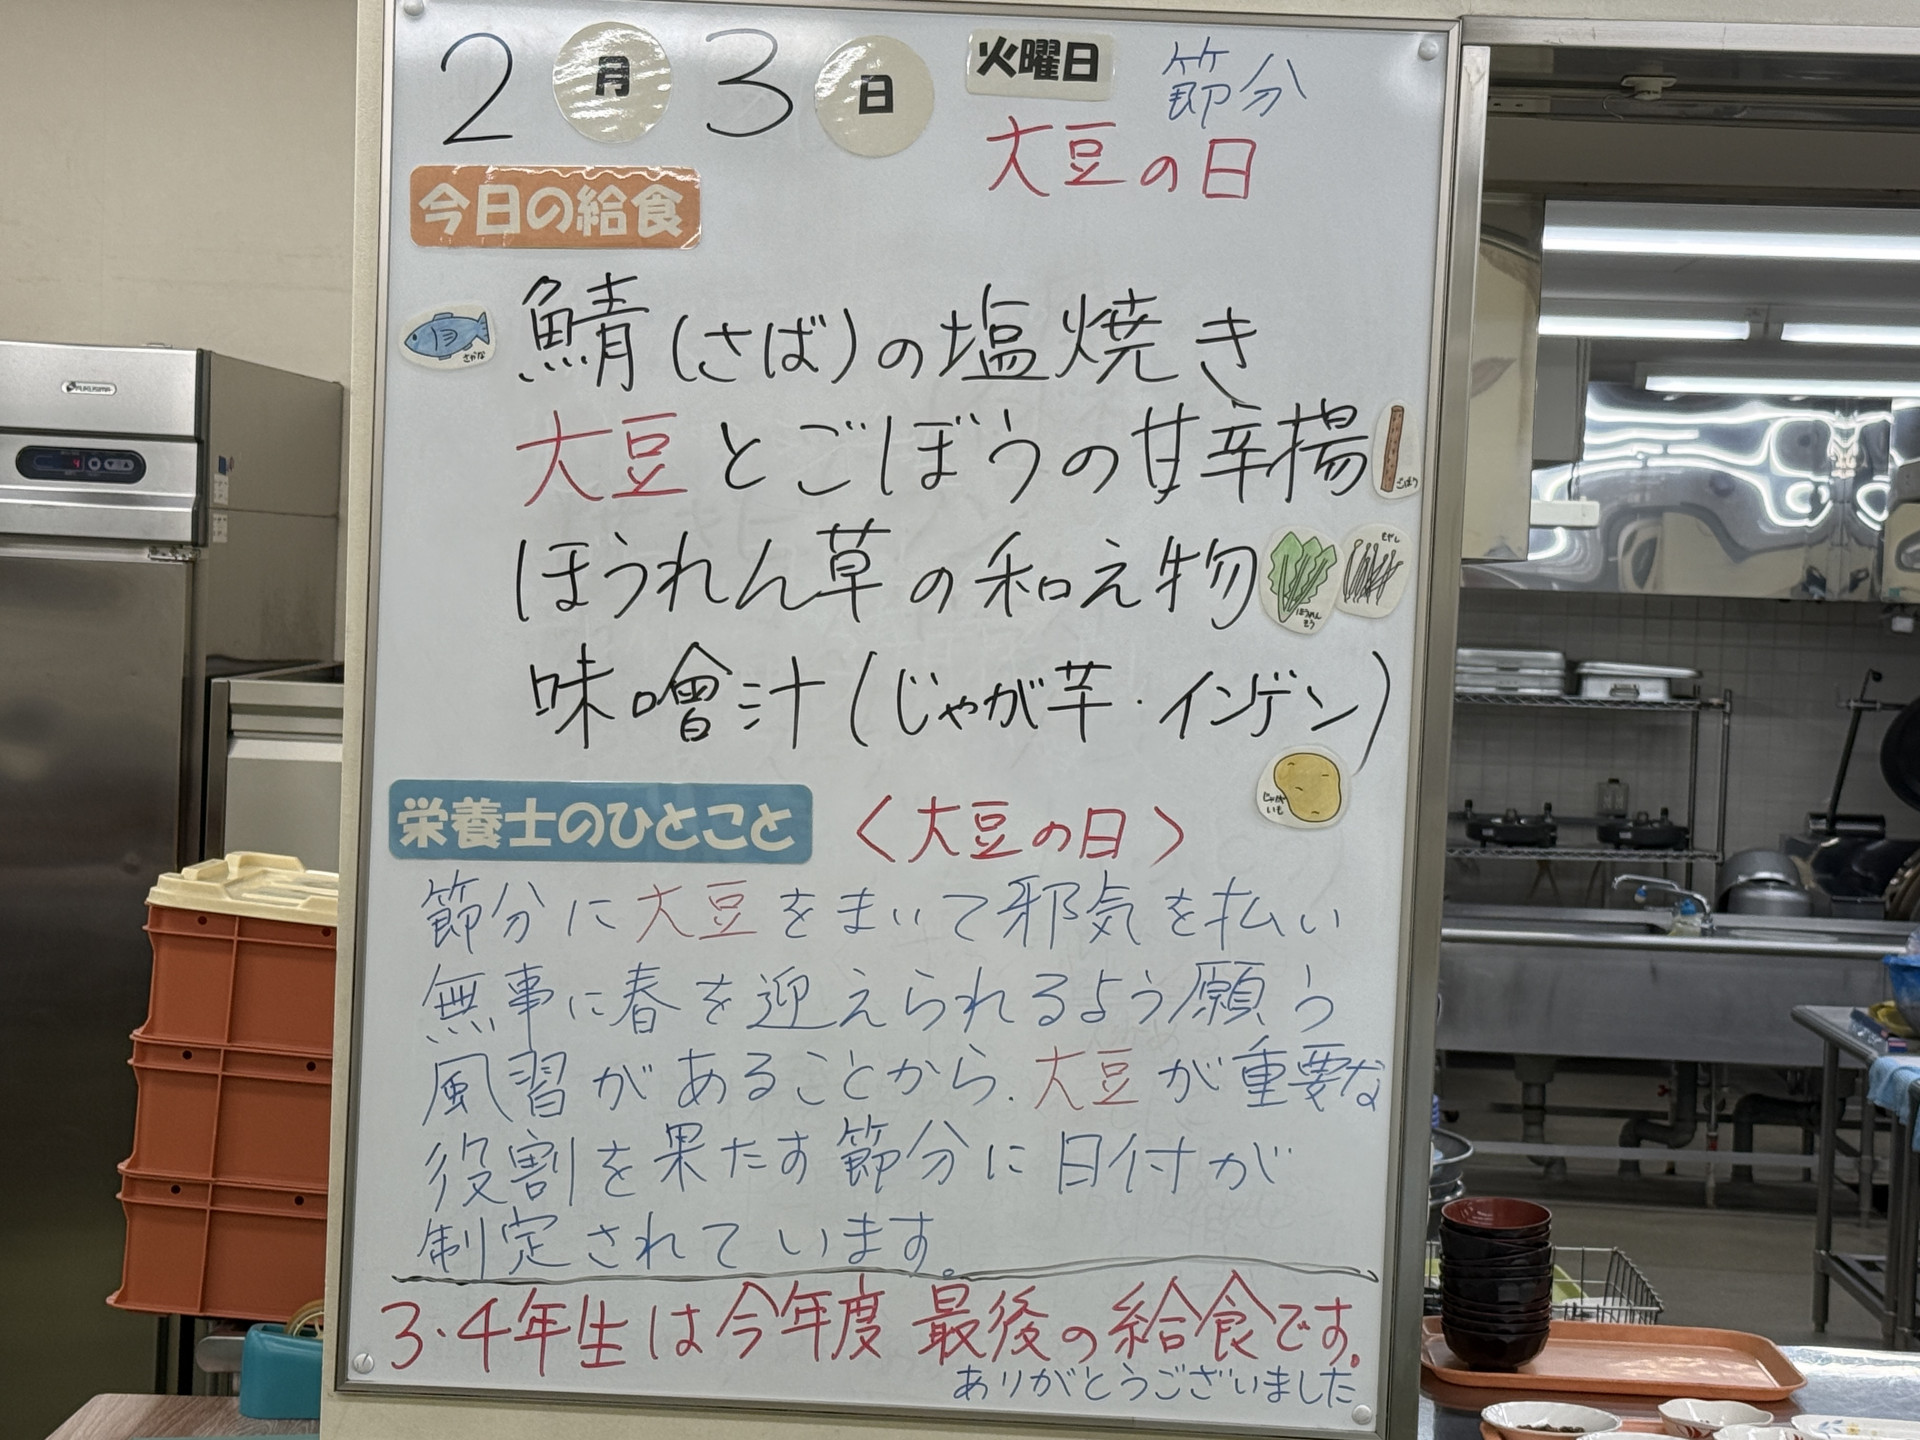 2月3日 火曜日 節分
大豆の日
今日の給食
さかな
鯖(さば)の塩焼き
大豆とごぼうの甘辛揚
ごぼう
ほうれん草の和え物
ほうれんそう
もやし
味噌汁(じゃが芋・インゲン)
じゃがいも
栄養士のひとこと 〈大豆の日〉
節分に大豆をまいて邪気を払い
無事に春を迎えられるよう願う
風習があることから、大豆が重要な
役割を果たす節分に日付が
制定されています。
3・4年生は今年度 最後の給食です。
ありがとうございました